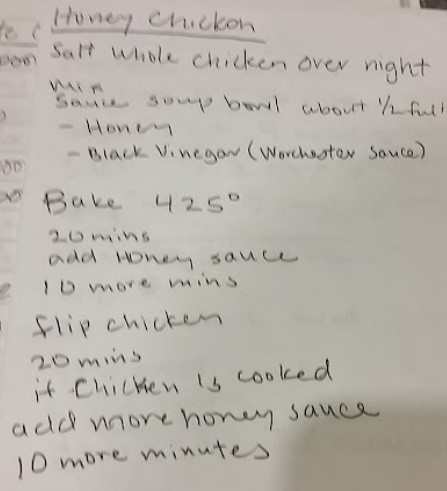 Honey Chickon
Salt Whole chicken over night
Mix
Sauce soup bowl about 1/2 full
- Honey
- Black Vinegar (Worchester sauce)
Bake 425°
20 mins
add Honey sauce
10 more mins
flip chicken
20 mins
if Chicken is cooked
add more honey sauce
10 more minutes